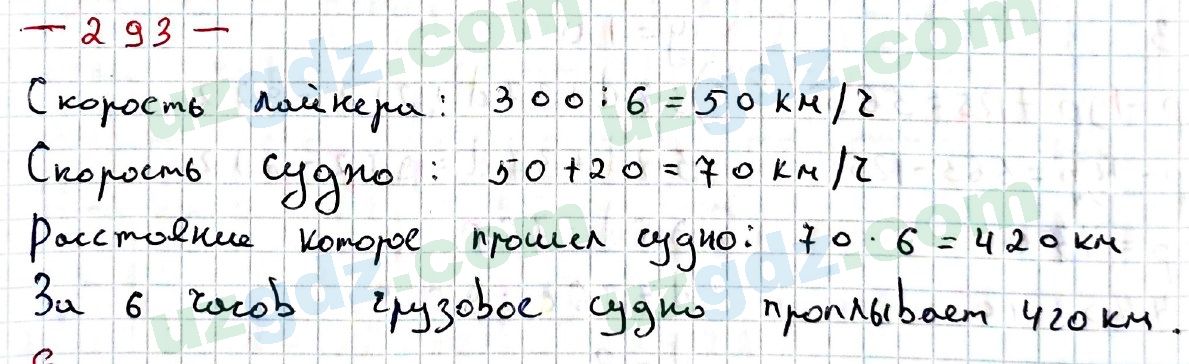 — 293 —
Скорость лайнера: 300:6=50 км/ч
Скорость судно: 50+20=70 км/ч
Расстояние которое прошел судно: 70·6=420 км
За 6 часов грузовое судно проплывает 420 км.
uzgdz.com